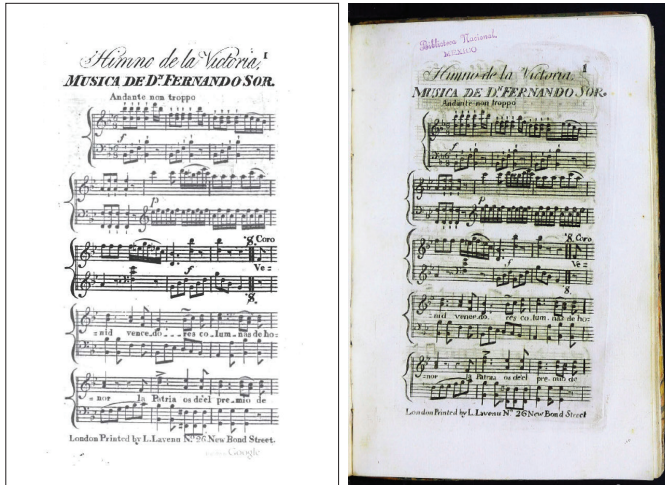 Himno de la Victoria, 1
MUSICA DE Dn FERNANDO SOR.
Andante non troppo
f
p
f
𝄋 Coro
Ve=
𝄋
=nid vence_do___res co_lum_nas de ho=
=nor la Patria os de'el pre_mio de
London Printed by L. Lavenu No. 26 New Bond Street.
Google
Biblioteca Nacional
MEXICO
1
Himno de la Victoria,
MUSICA DE Dn FERNANDO SOR.
Andante non troppo
f
p
f
𝄋 Coro
Ve=
𝄋
=nid vence_do_ res co_lum_nas de ho=
=nor la Patria os de'el pre_mio de
London Printed by L. Lavenu No. 26 New Bond Street